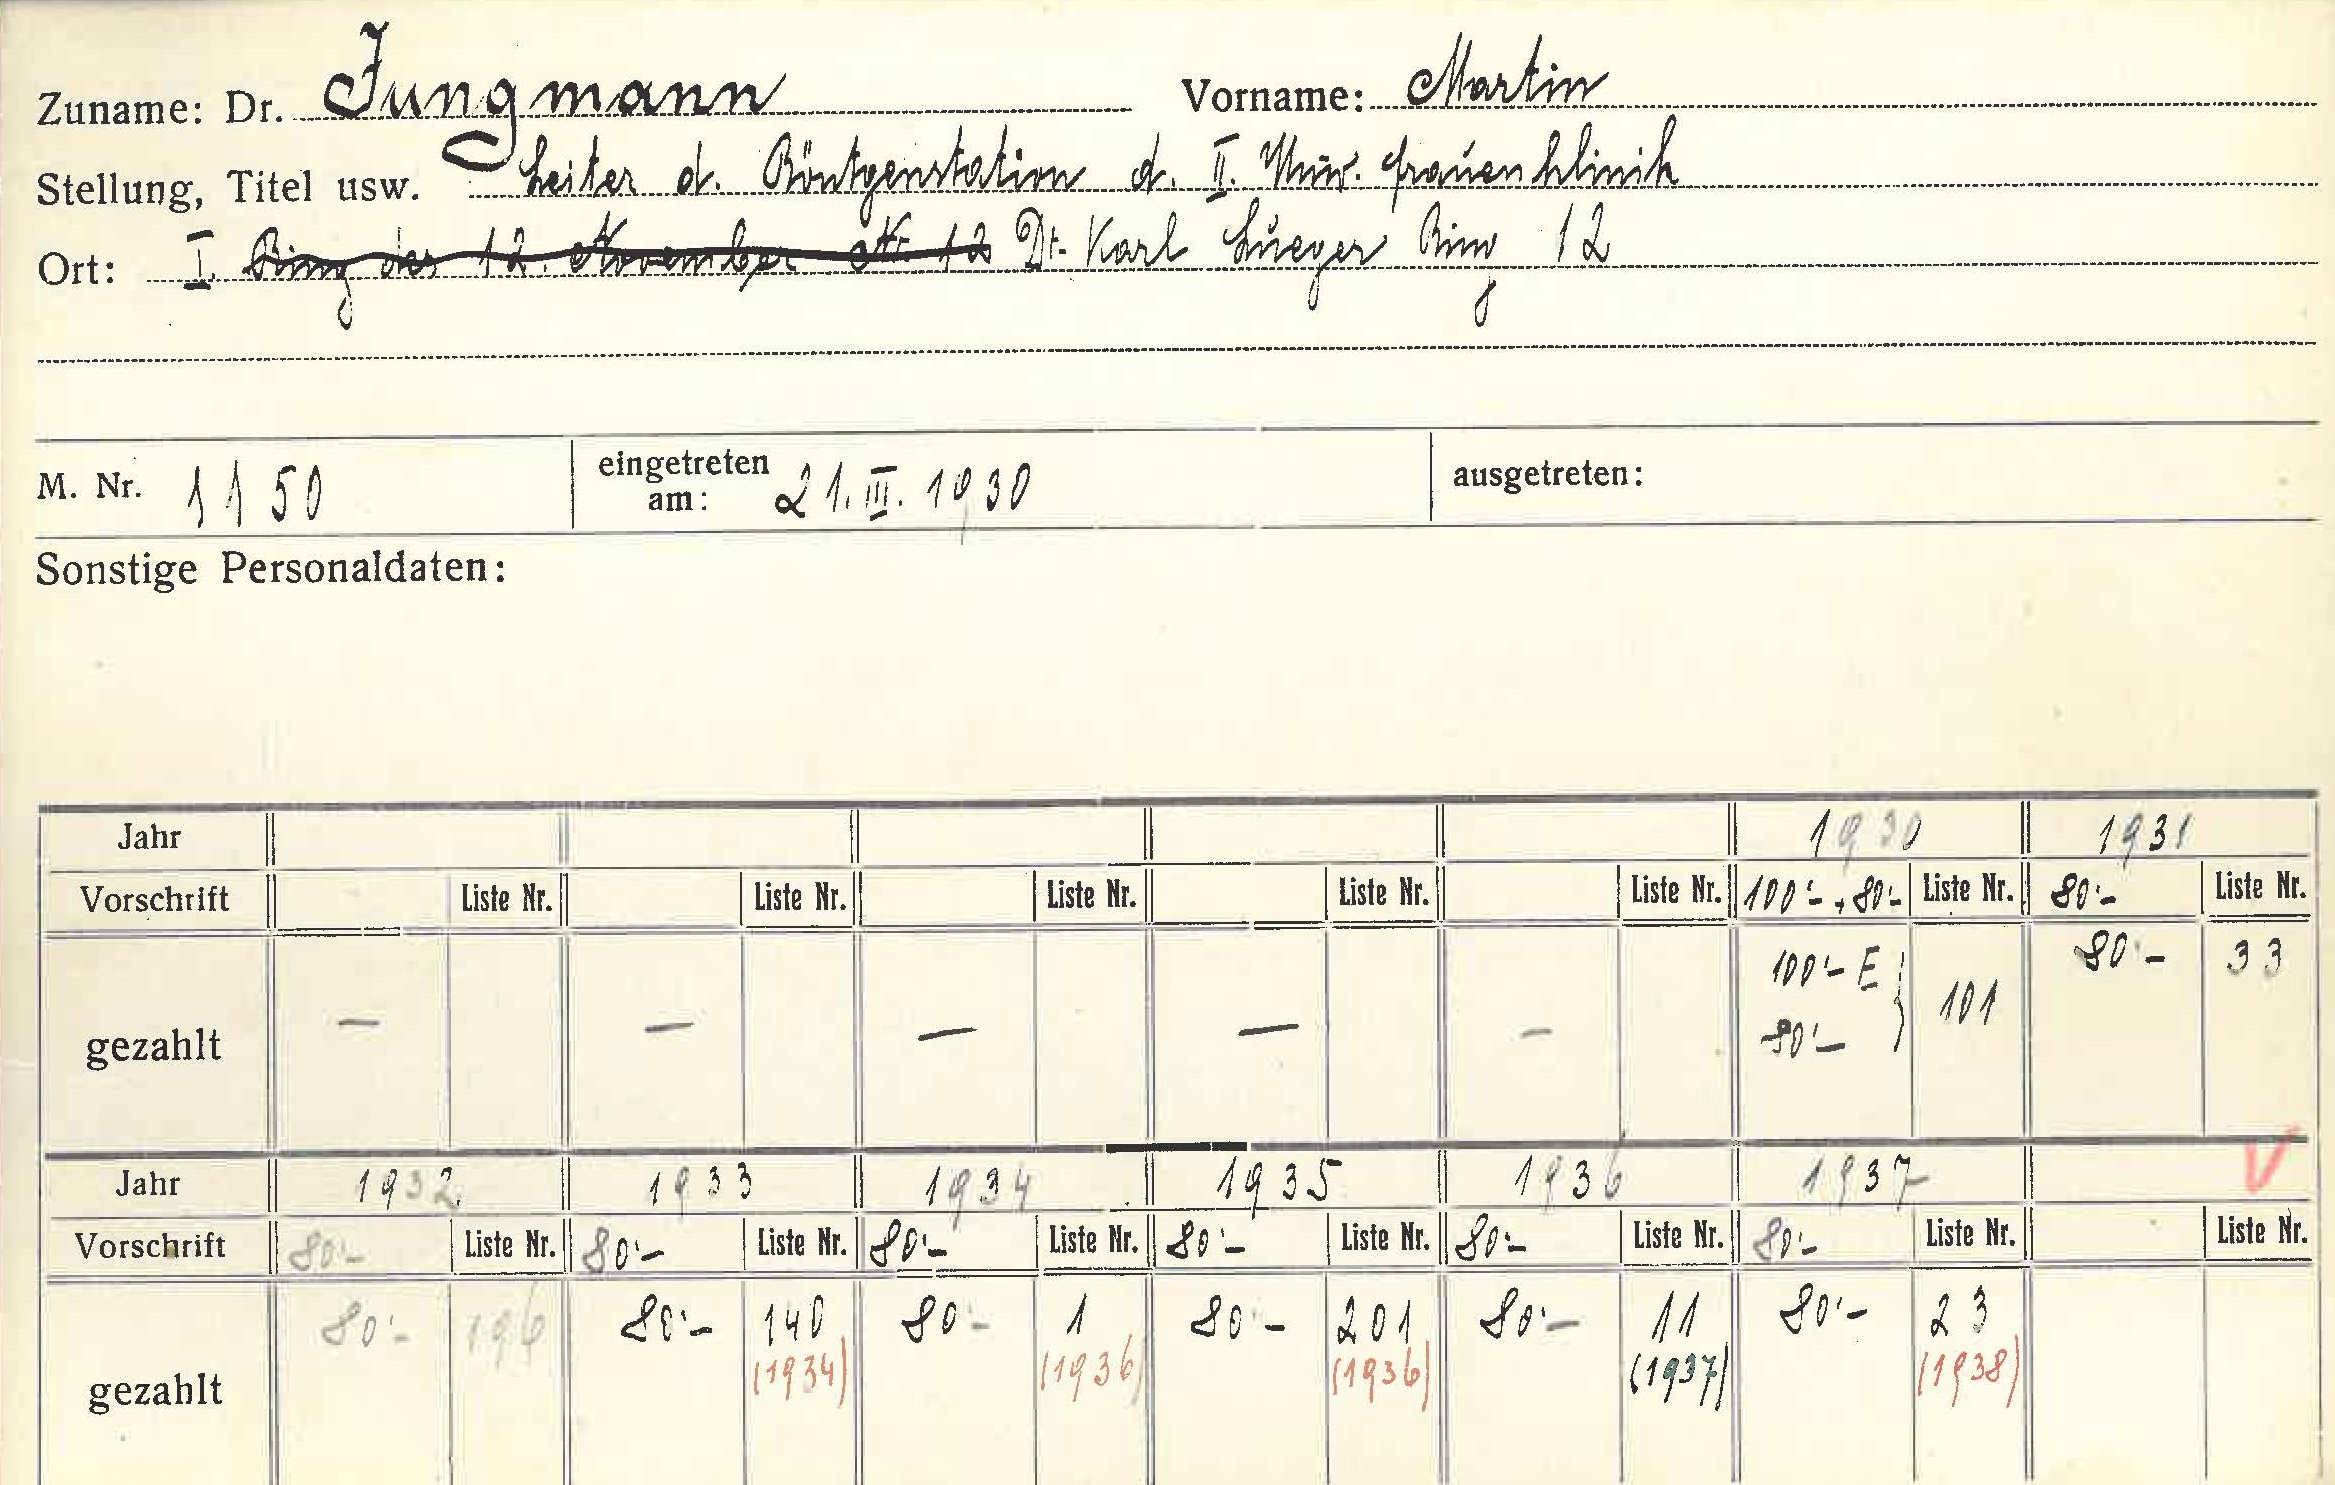 Zuname: Dr. Jungmann Vorname: Martin
Stellung, Titel usw. Leiter d. Röntgenstation d. II. Univ. Frauenklinik
Ort: I. Ring des 12. November Nr. 12 Dr. Karl Lueger Ring 12
M. Nr. 1150 eingetreten am: 21. III. 1930 ausgetreten:
Sonstige Personaldaten:
Jahr 1930 1931
Vorschrift Liste Nr. Liste Nr. Liste Nr. Liste Nr. Liste Nr. 100'- + 80'- Liste Nr. 80'- Liste Nr.
gezahlt — — — — — 100'- E 80'- } 101 80'- 33
Jahr 1932 1933 1934 1935 1936 1937 V
Vorschrift 80'- Liste Nr. 80'- Liste Nr. 80'- Liste Nr. 80'- Liste Nr. 80'- Liste Nr. 80'- Liste Nr. Liste Nr.
gezahlt 80'- 196 80'- 140 (1934) 80'- 1 (1936) 80'- 201 (1936) 80'- 11 (1937) 80'- 23 (1938)